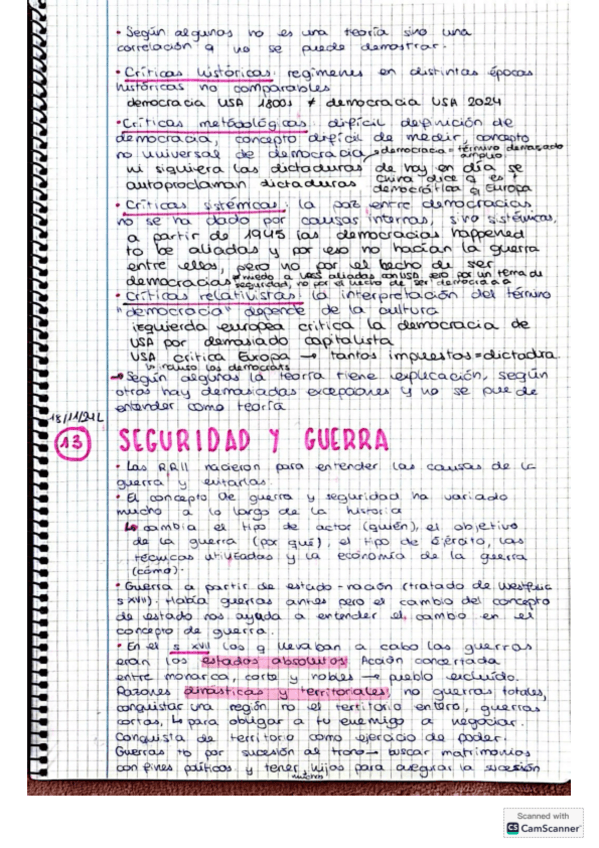 • Según algunos no es una teoría sino una
correlación q no se puede demostrar.
• Críticas históricas: regímenes en distintas épocas
históricas no comparables
democracia USA 1800s ≠ democracia USA 2024
• Críticas metodológicas: difícil definición de
democracia, concepto difícil de medir, concepto
no universal de democracia → democracia = término demasiado amplio
ni siquiera las dictaduras de hoy en día se
autoproclaman dictaduras China dice q es + democrática q Europa
• Críticas sistémicas: la paz entre democracias
no se ha dado por causas internas, sino sistémicas,
a partir de 1945 las democracias happened
to be aliadas y por eso no hacían la guerra
entre ellas, pero no por el hecho de ser
democracias aliadas con USA por un tema de
seguridad, no por el hecho de ser democracia
• Críticas relativistas: la interpretación del término
"democracia" depende de la cultura
izquierda europea critica la democracia de
USA por demasiado capitalista
USA critica Europa → tantos impuestos = dictadra
los democrats
→ Según algunos la teoría tiene explicación, según
otros hay demasiadas excepciones y no se puede
entender como teoría
13 SEGURIDAD Y GUERRA
• Las RRII nacieron para entender las causas de la
guerra y evitarlas.
• El concepto de guerra y seguridad ha variado
mucho a lo largo de la historia
↳ cambia el tipo de actor (quién), el objetivo
de la guerra (por qué), el tipo de ejército, las
técnicas utilizadas y la economía de la guerra
(cómo).
• Guerra a partir de estado-nación (tratado de Westfalia
s XVII). Había guerras antes pero el cambio del concepto
de estado nos ayuda a entender el cambio en el
concepto de guerra.
• En el s XVII los q llevaban a cabo las guerras
eran los estados absolutos. Acción concertada
entre monarca, corte y nobles → pueblo excluido.
Razones dinásticas y territoriales, no guerras totales,
conquistar una región no el territorio entero, guerras
cortas, ↳ para obligar a tu enemigo a negociar.
Conquista de territorio como ejercicio de poder.
Guerras tb por sucesión al trono → buscar matrimonios
con fines políticos y tener muchos hijos para asegurar la sucesión
Scanned with
CS CamScanner